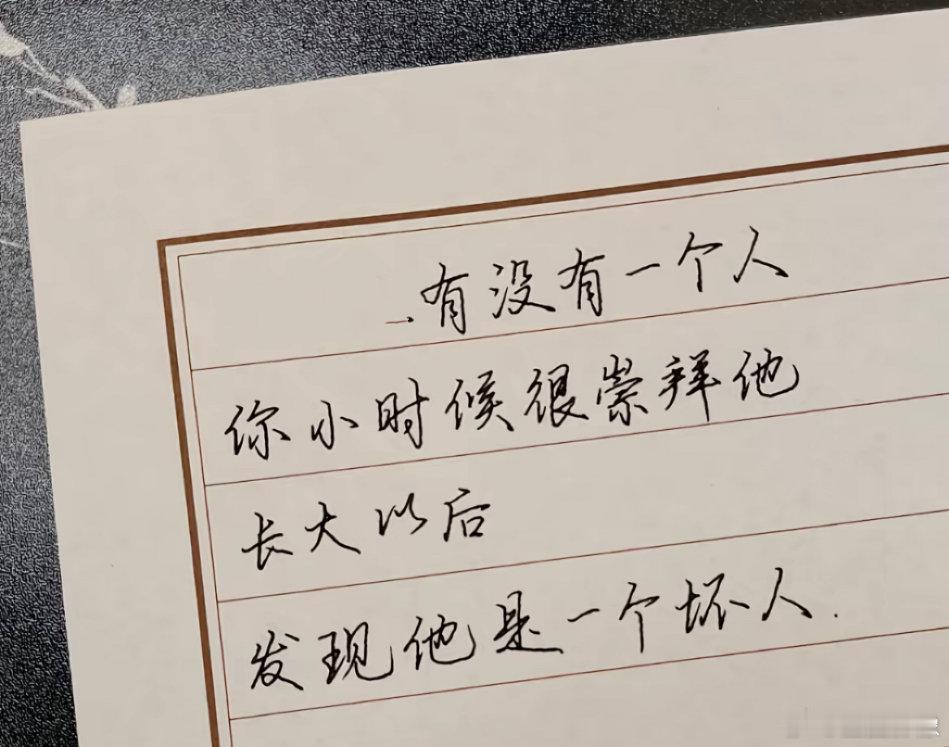 一.有没有一个人
你小时候很崇拜他
长大以后
发现他是一个坏人.